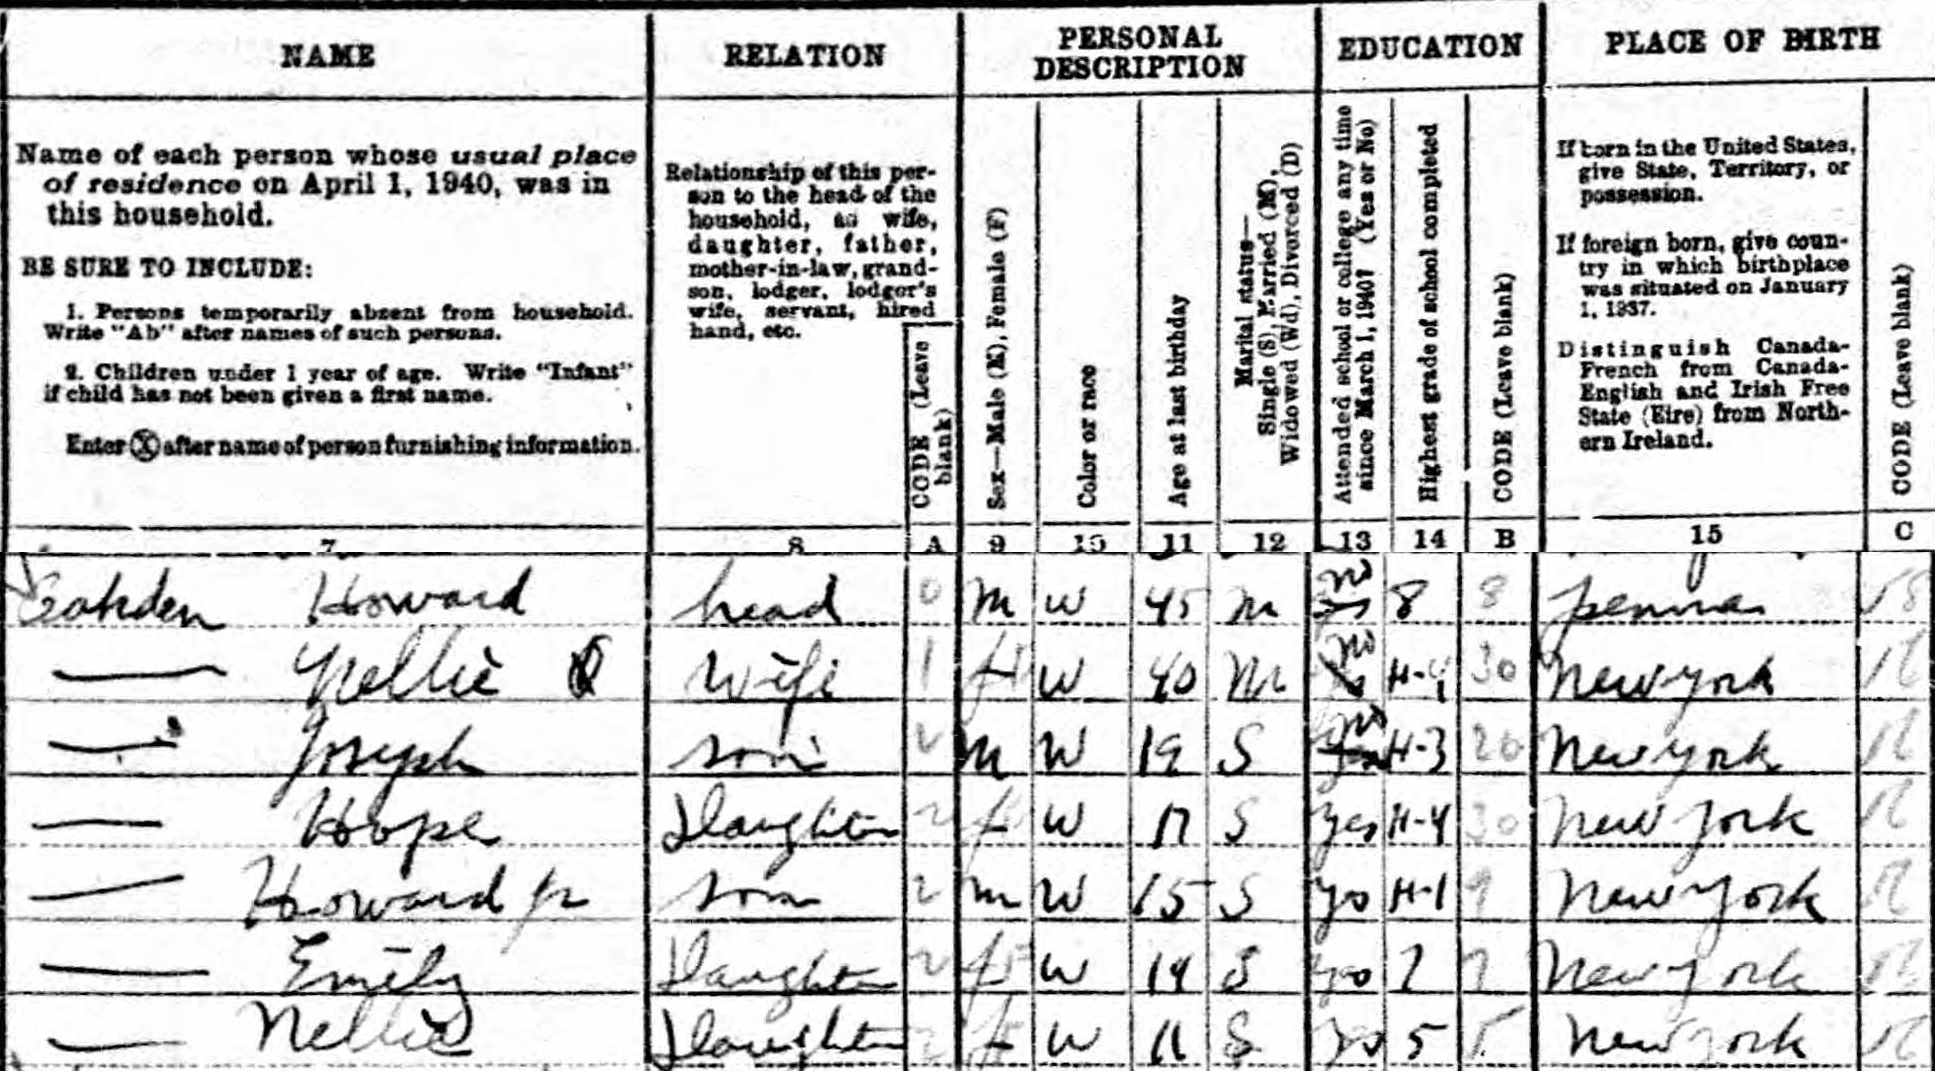 NAME
RELATION
PERSONAL DESCRIPTION
EDUCATION
PLACE OF BIRTH
Name of each person whose usual place
of residence on April 1, 1940, was in
this household.
BE SURE TO INCLUDE:
1. Persons temporarily absent from household.
Write "Ab" after names of such persons.
2. Children under 1 year of age. Write "Infant"
if child has not been given a first name.
Enter Ⓧ after name of person furnishing information.
Relationship of this per-
son to the head of the
household, as wife,
daughter, father,
mother-in-law, grand-
son, lodger, lodger's
wife, servant, hired
hand, etc.
CODE (Leave blank)
Sex—Male (M), Female (F)
Color or race
Age at last birthday
Marital status—
Single (S), Married (M),
Widowed (Wd), Divorced (D)
Attended school or college any time
since March 1, 1940? (Yes or No)
Highest grade of school completed
CODE (Leave blank)
If born in the United States,
give State, Territory, or
possession.
If foreign born, give coun-
try in which birthplace
was situated on January
1, 1937.
Distinguish Canada-
French from Canada-
English and Irish Free
State (Eire) from North-
ern Ireland.
CODE (Leave blank)
7 8 A 9 10 11 12 13 14 B 15 C
Howard head 0 M W 45 M no 8 8 Penna
— Nellie wife 1 f W 40 M no H-4 30 New York
— Joseph son M W 19 S no H-3 20 New York
— Hope Daughter 2 f W 17 S yes H-4 30 New York
— Howard Jr son 2 M W 15 S yes H-1 9 New York
— Emily Daughter 2 f W 14 S yes 7 7 New York
— Nellie Daughter 2 f W 11 S yes 5 5 New York